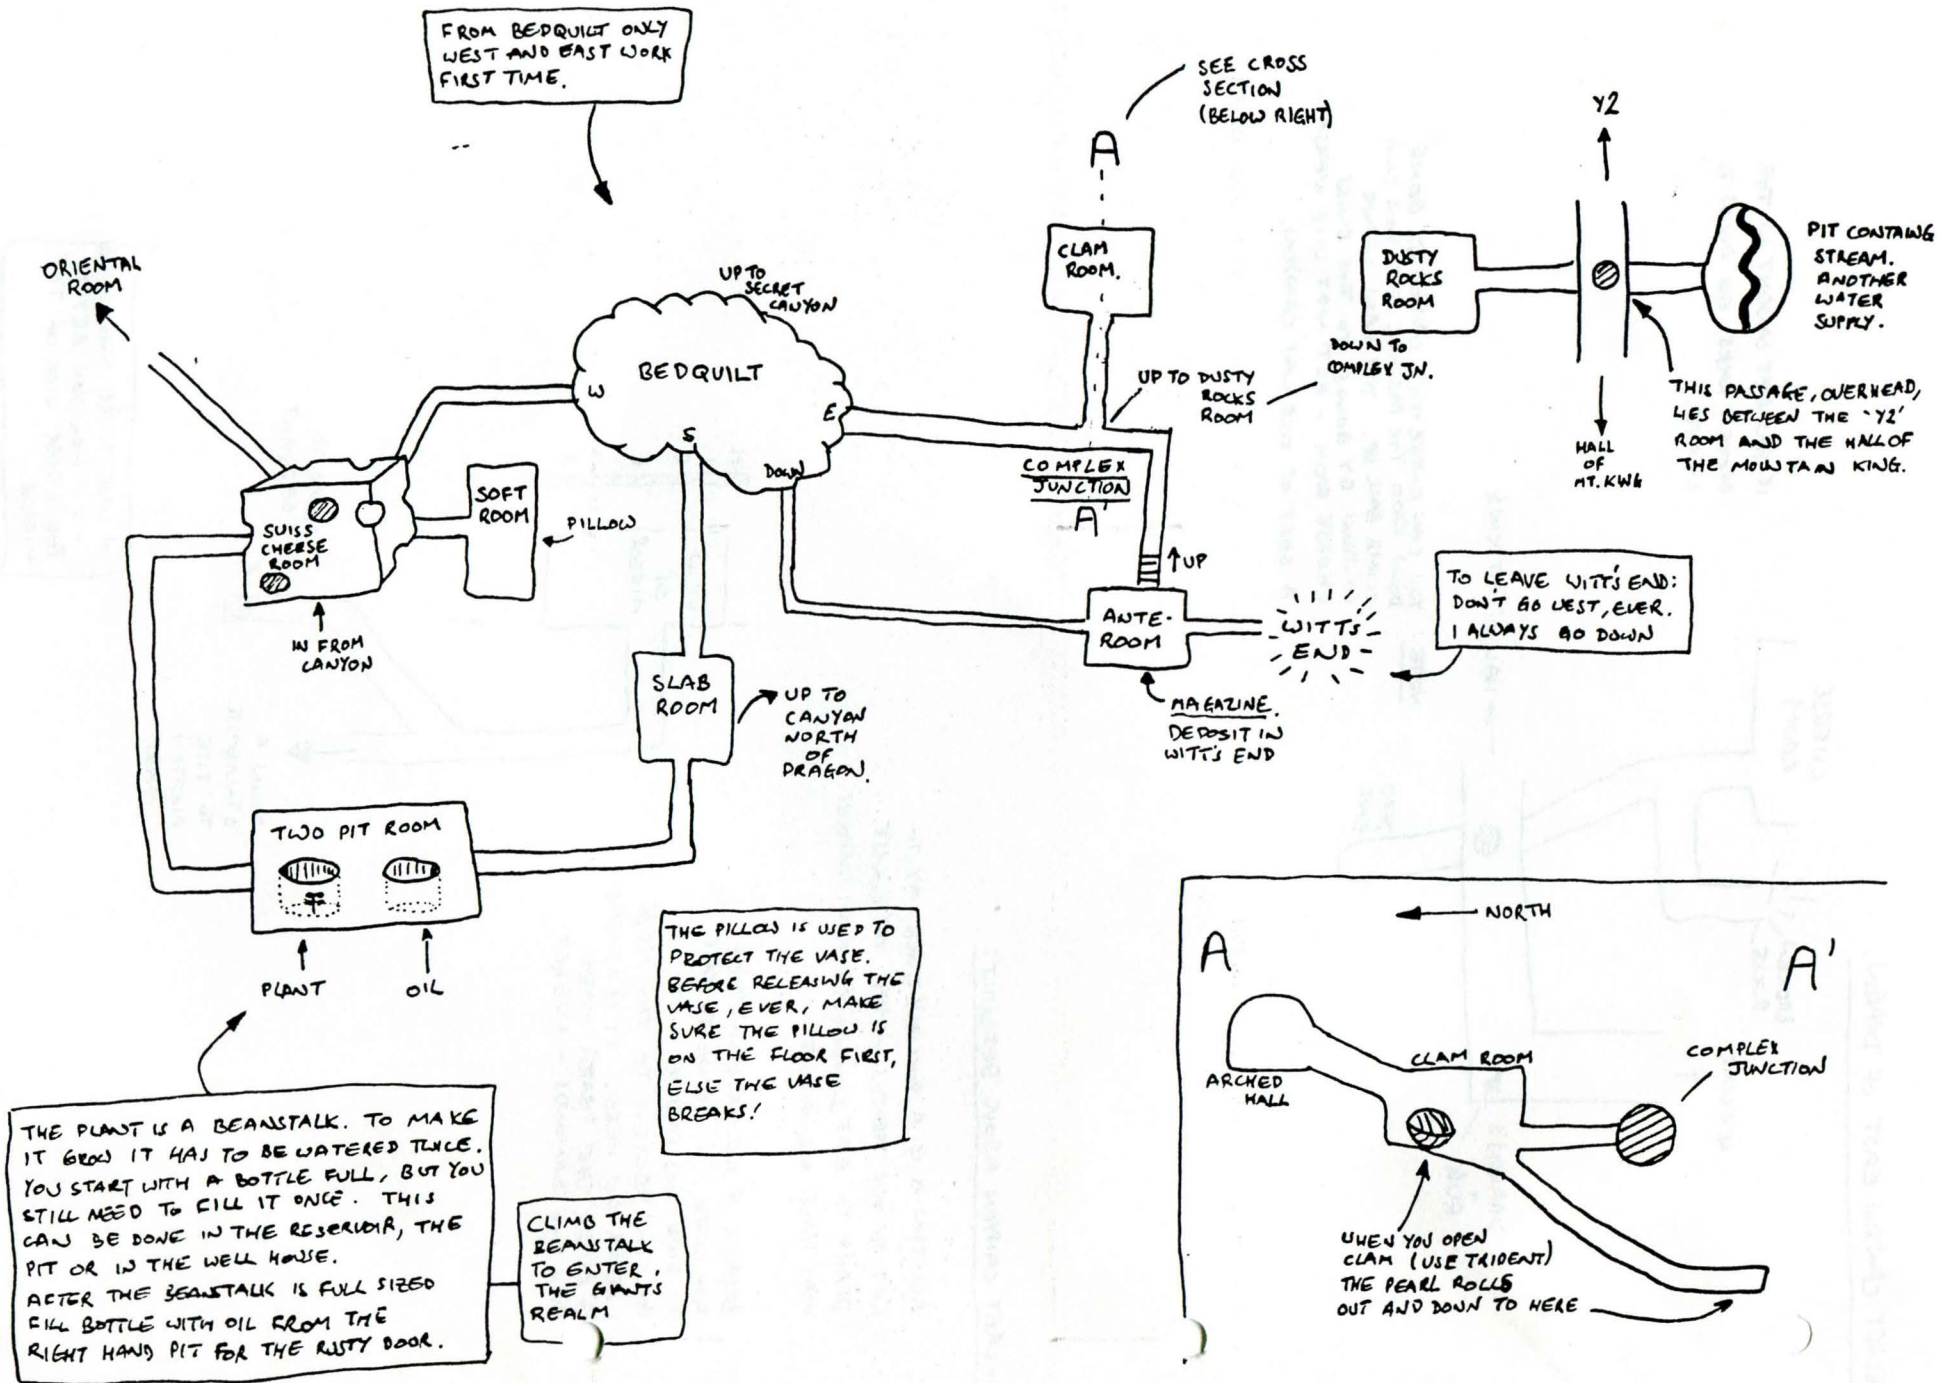 FROM BEDQUILT ONLY
WEST AND EAST WORK
FIRST TIME.
SEE CROSS
SECTION
(BELOW RIGHT)
A
Y2
CLAM
ROOM.
DUSTY
ROCKS
ROOM
PIT CONTAING
STREAM.
ANOTHER
WATER
SUPPLY.
ORIENTAL
ROOM
UP TO
SECRET
CANYON
BEDQUILT
W
E
S
DOWN
DOWN TO
COMPLEX JN.
UP TO DUSTY
ROCKS
ROOM
THIS PASSAGE, OVERHEAD,
LIES BETWEEN THE 'Y2'
ROOM AND THE HALL OF
THE MOUNTAIN KING.
HALL
OF
MT. KING
COMPLEX
JUNCTION
A
SUISS
CHEESE
ROOM
SOFT
ROOM
PILLOW
IN FROM
CANYON
UP
ANTE-
ROOM
WITT'S
END
TO LEAVE WITT'S END:
DON'T GO WEST, EVER.
I ALWAYS GO DOWN
MAGAZINE.
DEPOSIT IN
WITT'S END
SLAB
ROOM
UP TO
CANYON
NORTH
OF
DRAGON.
TWO PIT ROOM
PLANT
OIL
THE PILLOW IS USED TO
PROTECT THE VASE.
BEFORE RELEASING THE
VASE, EVER, MAKE
SURE THE PILLOW IS
ON THE FLOOR FIRST,
ELSE THE VASE
BREAKS!
THE PLANT IS A BEANSTALK. TO MAKE
IT GROW IT HAS TO BE WATERED TWICE.
YOU START WITH A BOTTLE FULL, BUT YOU
STILL NEED TO FILL IT ONCE. THIS
CAN BE DONE IN THE RESERVOIR, THE
PIT OR IN THE WELL HOUSE.
AFTER THE BEANSTALK IS FULL SIZED
FILL BOTTLE WITH OIL FROM THE
RIGHT HAND PIT FOR THE RUSTY DOOR.
CLIMB THE
BEANSTALK
TO ENTER.
THE GIANTS
REALM
NORTH
A
A'
ARCHED
HALL
CLAM ROOM
COMPLEX
JUNCTION
WHEN YOU OPEN
CLAM (USE TRIDENT)
THE PEARL ROLLS
OUT AND DOWN TO HERE